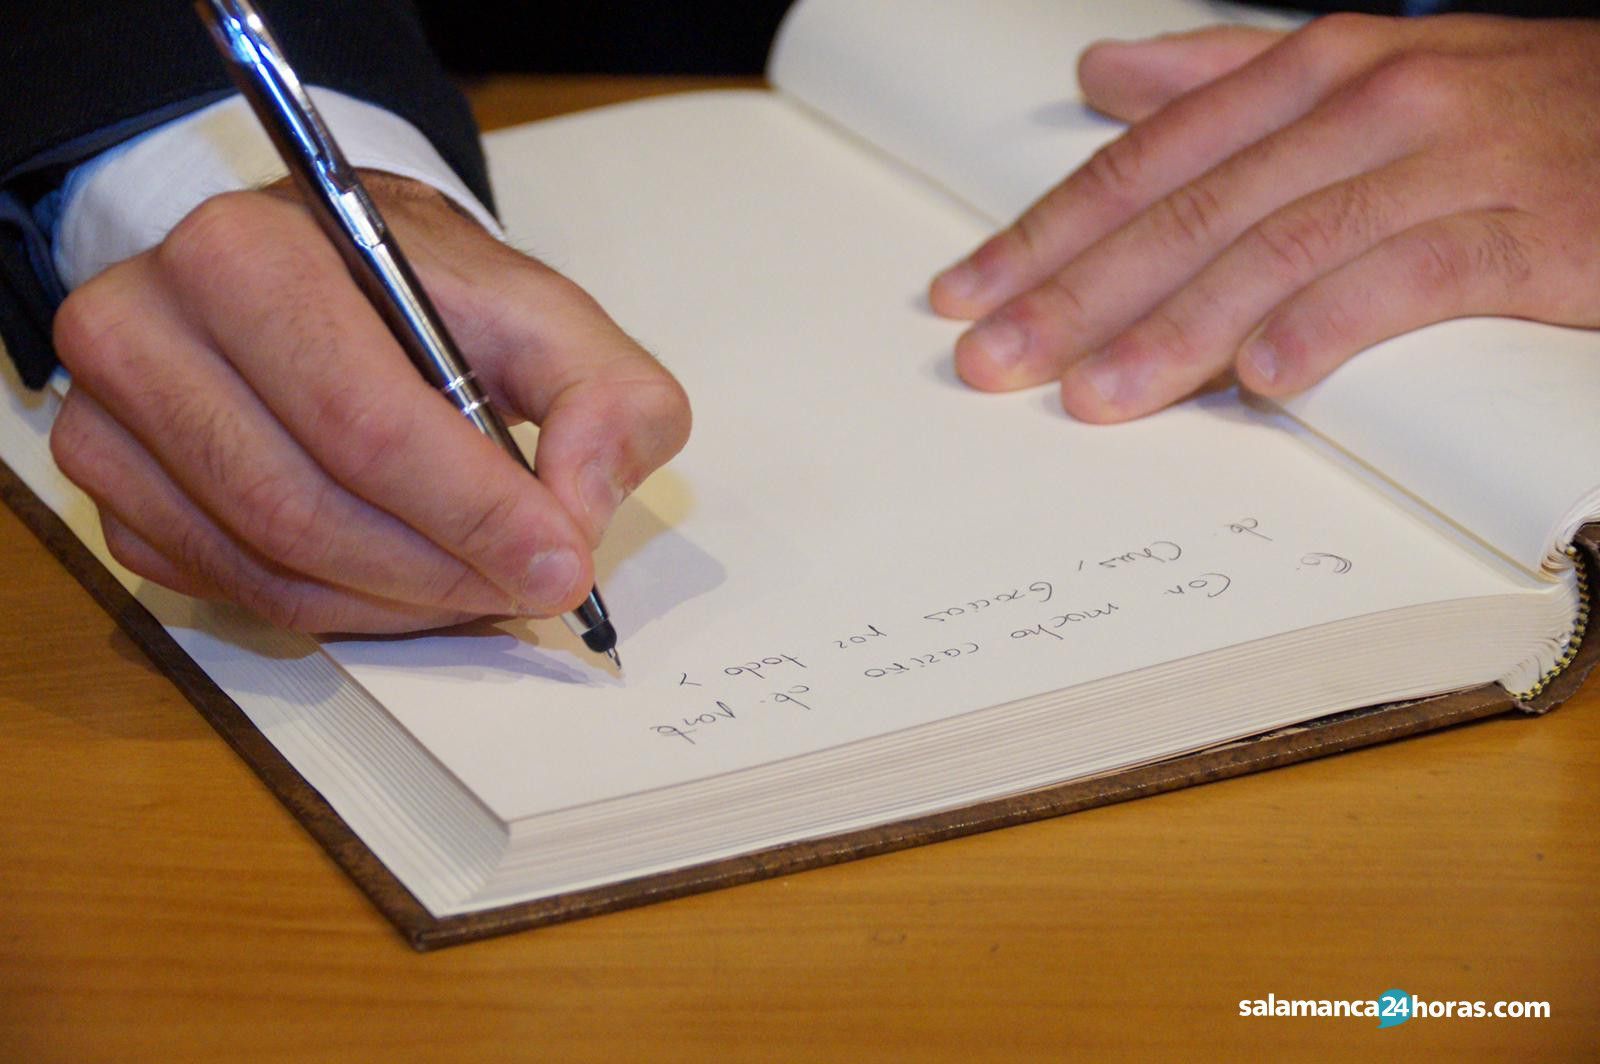 Con mucho cariño de parte
de Chus, Gracias por todo y
salamanca24horas.com